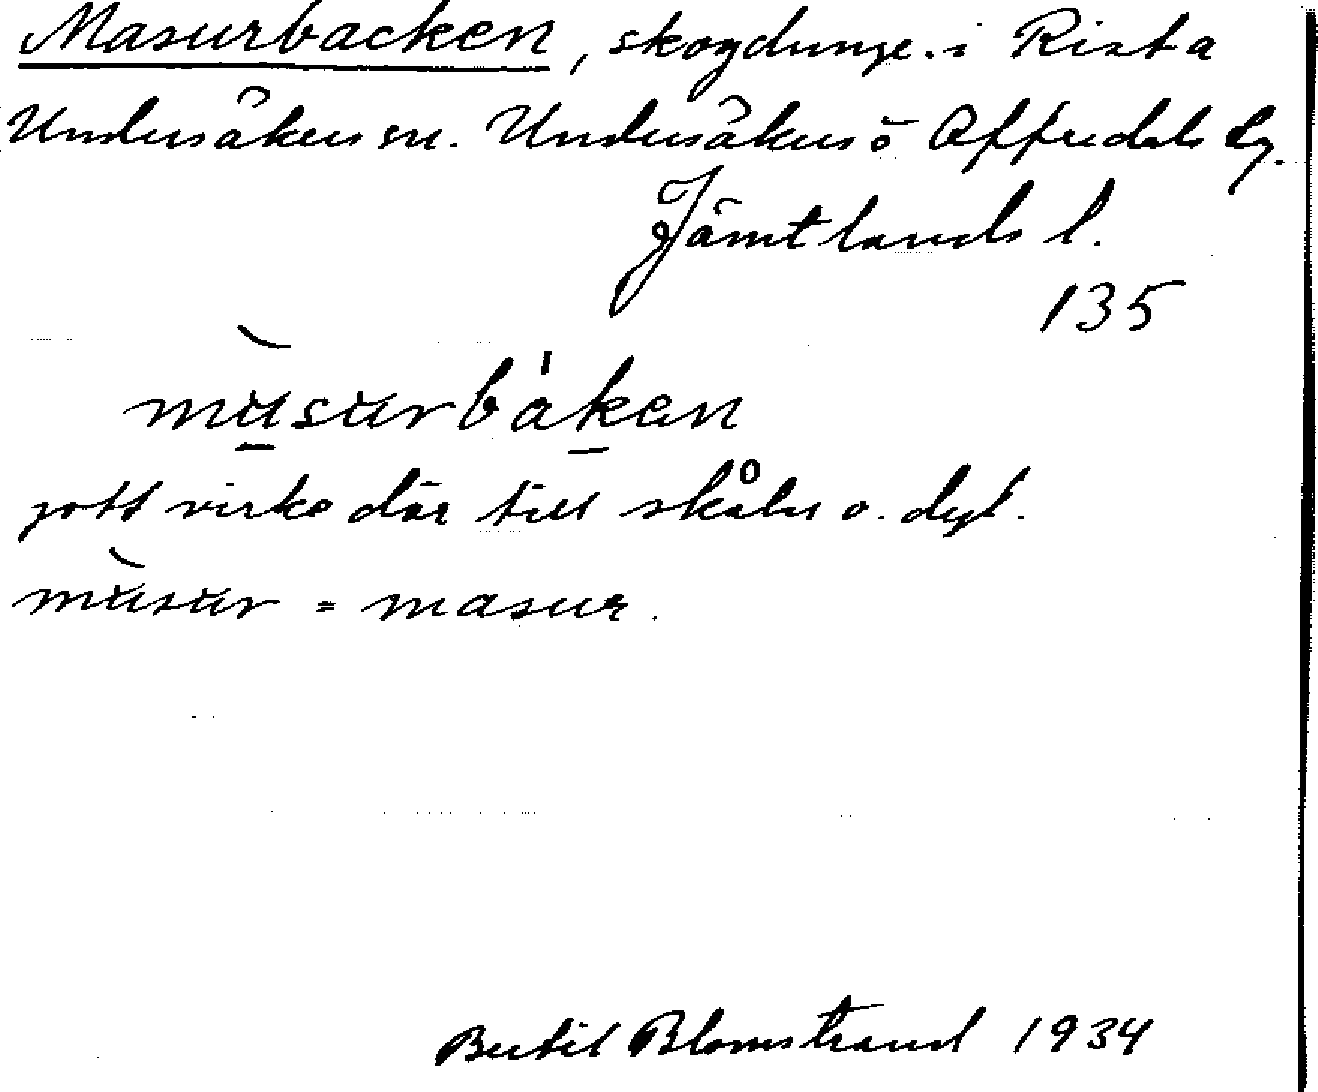 Masurbacken, skogdunge i Rista
Undersåkers sn. Undersåkers o Offerdals tg.
Jämtlands l.
135
mu̲surbàk̲en
gott virke där till skålar o. dyl.
musur = masur.
Bertil Blomstrand 1934